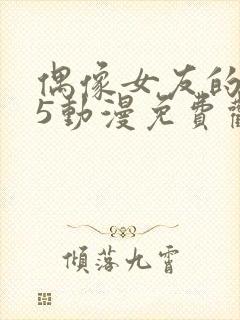 偶像女友的
5動漫免費
傾落九霄